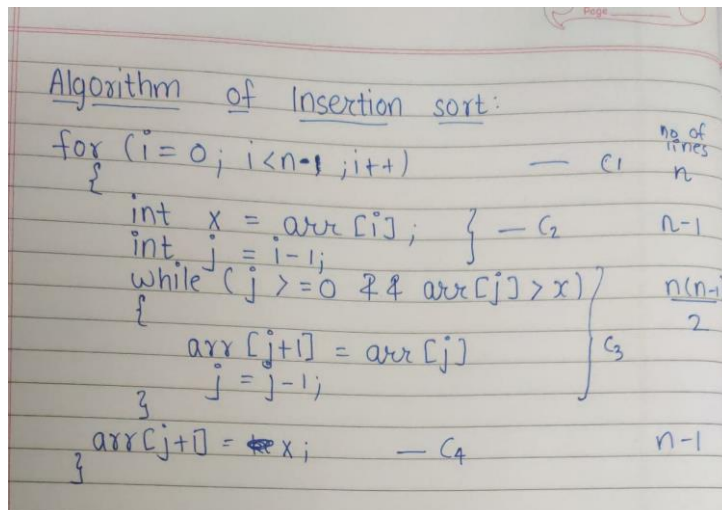 Page
Algorithm of Insertion sort:
no of
lines
for (i = 0; i<n-1 ; i++) — C1 n
{
int x = arr [i]; } — C2 n-1
int j = i-1;
while (j >=0 && arr[j] > x) n(n-1
{ 2
arr [j+1] = arr [j] C3
j = j-1;
}
arr[j+1] = x; — C4 n-1
}